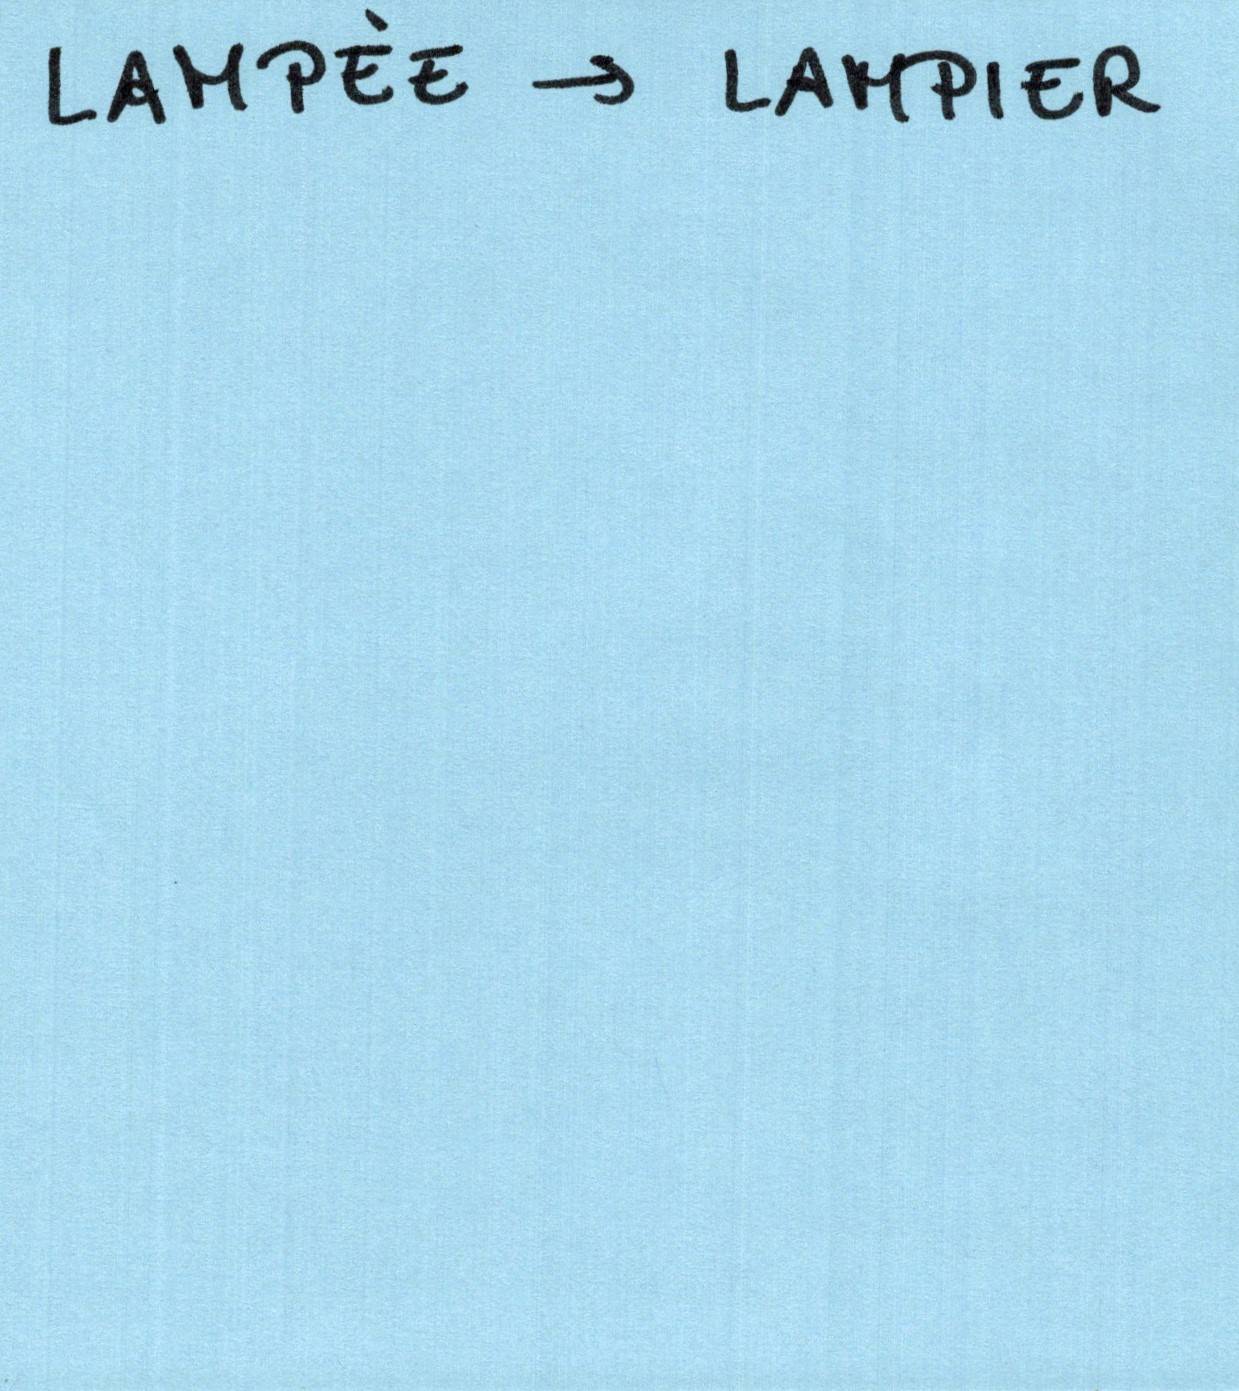 LAMPÈE → LAMPIER